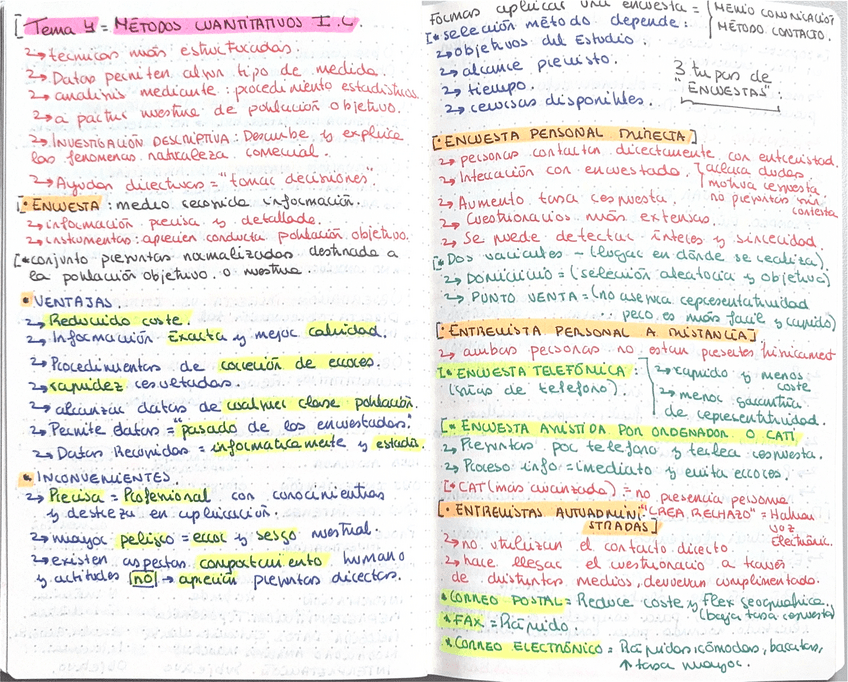 [Tema 4 = MÉTODOS CUANTITATIVOS I.C.
↳ técnicas más estructuradas.
↳ Datos permiten algun tipo de medida.
↳ analisis mediante: procedimiento estadísticos
↳ a partir muestra de población objetivo.
↳ INVESTIGACIÓN DESCRIPTIVA: Describe y explica
los fenomenos naturaleza comercial.
↳ Ayudar directivos = "tomar decisiones".
[• ENCUESTA: medio recogida información.
↳ información precisa y detallada.
↳ instrumentos: aprecien conducta población objetivo.
[*conjunto preguntas normalizadas destinada a
la población objetivo o muestra.
* VENTAJAS.
↳ Reducido coste.
↳ Información Exacta y mejor calidad.
↳ Procedimientos de coreción de errores.
↳ rapidez resultados.
↳ alcanzar datos de cualquier clase población.
↳ Permite datos = "pasado de los encuestados."
↳ Datos Recunidos = informaticamente y estadis.
* INCONVENIENTES.
↳ Precisa = Profesional con conocimientos
y destreza en aplicación.
↳ mayor peligro = error y sesgo muestral.
↳ existen aspectos comportamiento humano
y actitudes no → aprecian preguntas directas.
Formas aplicar una encuesta = { MEDIO COMUNICACIÓN
MÉTODO CONTACTO.
[* selección método depende:
↳ objetivos del Estudio.
↳ alcance previsto.
↳ tiempo.
↳ recursos disponibles.
3 tipos de
"ENCUESTAS":
[• ENCUESTA PERSONAL DIRECTA]
↳ personas contactan directamente con entrevistad.
↳ Interacción con encuestado. { aclara dudas
motiva respuesta
no preguntas sin
contesta
↳ Aumento tasa respuesta.
↳ Cuestionarios más extensos.
↳ Se puede detectar interes y sinceridad.
[* Dos variantes - (lugar en dónde se realiza).
↳ DOMICILIO = (selección aleatoria y objetiva)
↳ PUNTO VENTA = (no asegura representatividad
pero es más facil y rapido)
[• ENTREVISTA PERSONAL A DISTANCIA]
↳ ambas personas no estan presentes fisicament
[* ENCUESTA TELEFÓNICA:
(guias de telefono).
↳ rapido y menos
coste
↳ menor garantia
de representitividad.
[* ENCUESTA ASISTIDA POR ORDENADOR O CATI
↳ Preguntas por telefono y teclea respuesta.
↳ Proceso info = inmediato y evita errores.
[* CAT (mas avanzada) = no presencia persona
"CREA RECHAZO" = Habla
voz
Electrónic.
[• ENTREVISTAS AUTOADMINI-
STRADAS]
↳ no utilizan el contacto directo.
↳ hace llegar el cuestionario a traves
de distintos medios, devuelven cumplimentado.
* CORREO POSTAL = Reduce coste y flex geografica.
(baja tasa respuesta)
* FAX = Rápido.
* CORREO ELECTRÓNICO = Rápidas, cómodas, baratas,
↑ tasa mayor.